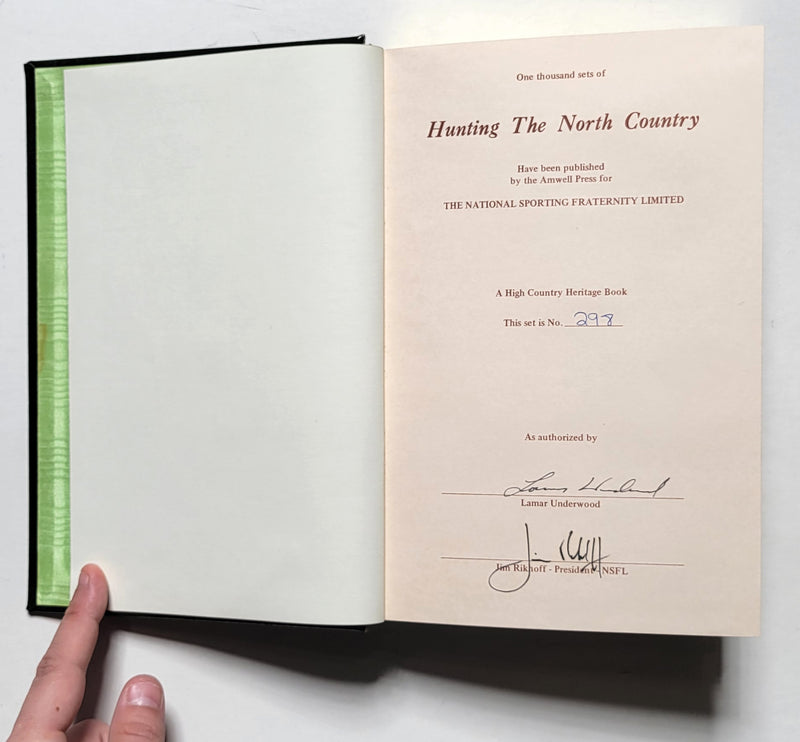 One thousand sets of
Hunting The North Country
Have been published
by the Amwell Press for
THE NATIONAL SPORTING FRATERNITY LIMITED
A High Country Heritage Book
This set is No. 298
As authorized by
Lamar Underwood
Lamar Underwood
Jim Rikhoff
Jim Rikhoff - President - NSFL